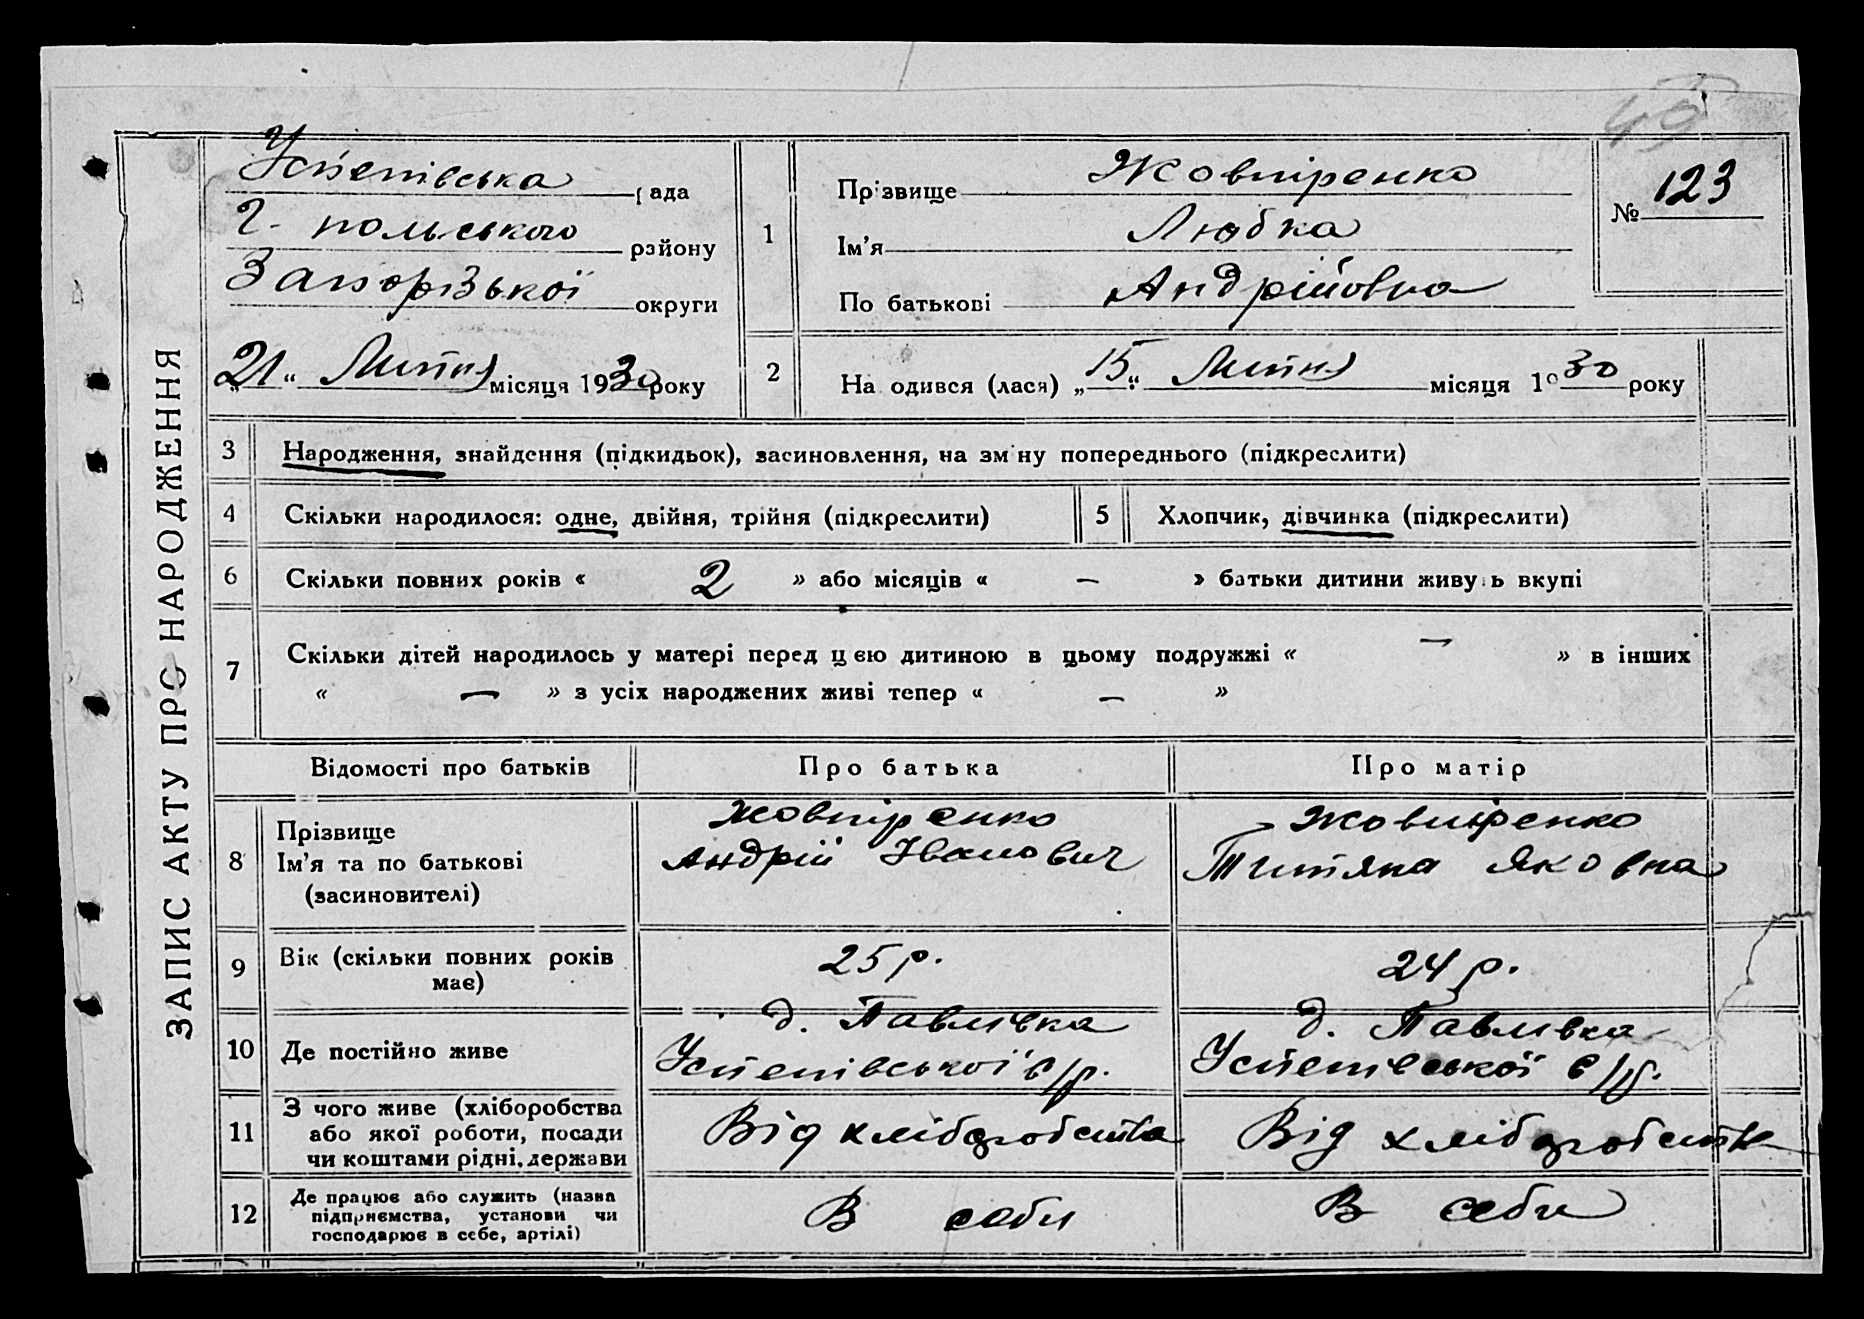 49
ЗАПИС АКТУ ПРО НАРОДЖЕННЯ
Успенівська рада
Г.-польського району
Запорізької округи
„21“ Липня місяця 1930 року
1
Прізвище Жовтіренко
Ім’я Любка
По батькові Андрійовна
№ 123
2
На одився (лася) „15“ Липня місяця 1930 року
3 Народження, знайдення (підкидьок), засиновлення, на зміну попереднього (підкреслити)
4 Скільки народилося: одне, двійня, трійня (підкреслити)
5 Хлопчик, дівчинка (підкреслити)
6 Скільки повних років « 2 » або місяців « — » батьки дитини живуть вкупі
7 Скільки дітей народилось у матері перед цією дитиною в цьому подружжі « — » в інших
« — » з усіх народжених живі тепер « — »
Відомості про батьків Про батька Про матір
8 Прізвище
Ім’я та по батькові
(засиновителі)
Жовтіренко
Андрій Іванович
Жовтіренко
Титяна Яковна
9 Вік (скільки повних років
має)
25 р.
24 р.
10 Де постійно живе
д. Павлівка
Успенівської с/р.
д. Павлівка
Успенівської с/р.
11 З чого живе (хліборобства
або якої роботи, посади
чи коштами рідні, держави
Від хліборобства
Від хліборобства
12 Де працює або служить (назва
підприємства, установи чи
господарює в себе, артілі)
В себи
В себи